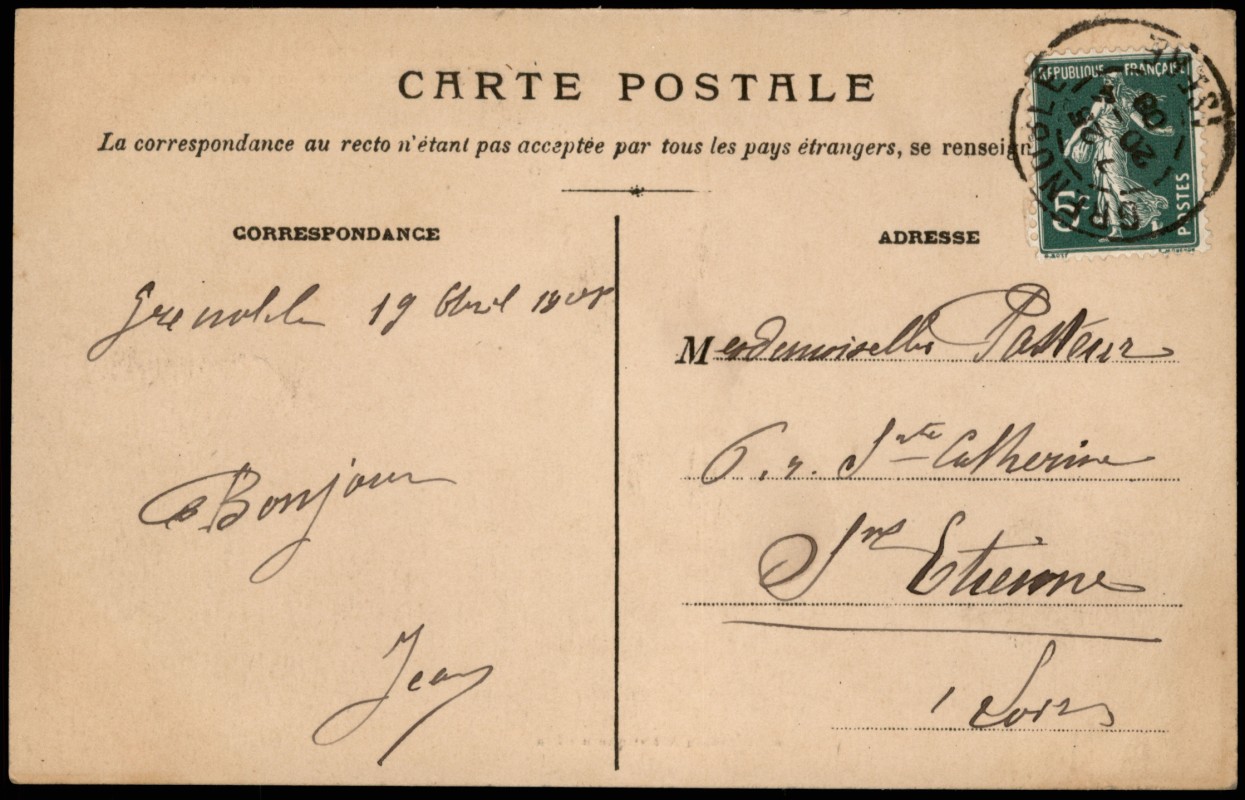 CARTE POSTALE
La correspondance au recto n'étant pas acceptée par tous les pays étrangers, se renseign
RÉPUBLIQUE FRANÇAISE
5c
POSTES
GRENOBLE
ISERE
20
08
CORRESPONDANCE
ADRESSE
Grenoble 19 Avril 1908
Mesdemoiselles Pasteur
6. r. Ste Catherine
Bonjour
Etienne
Jean
Loire